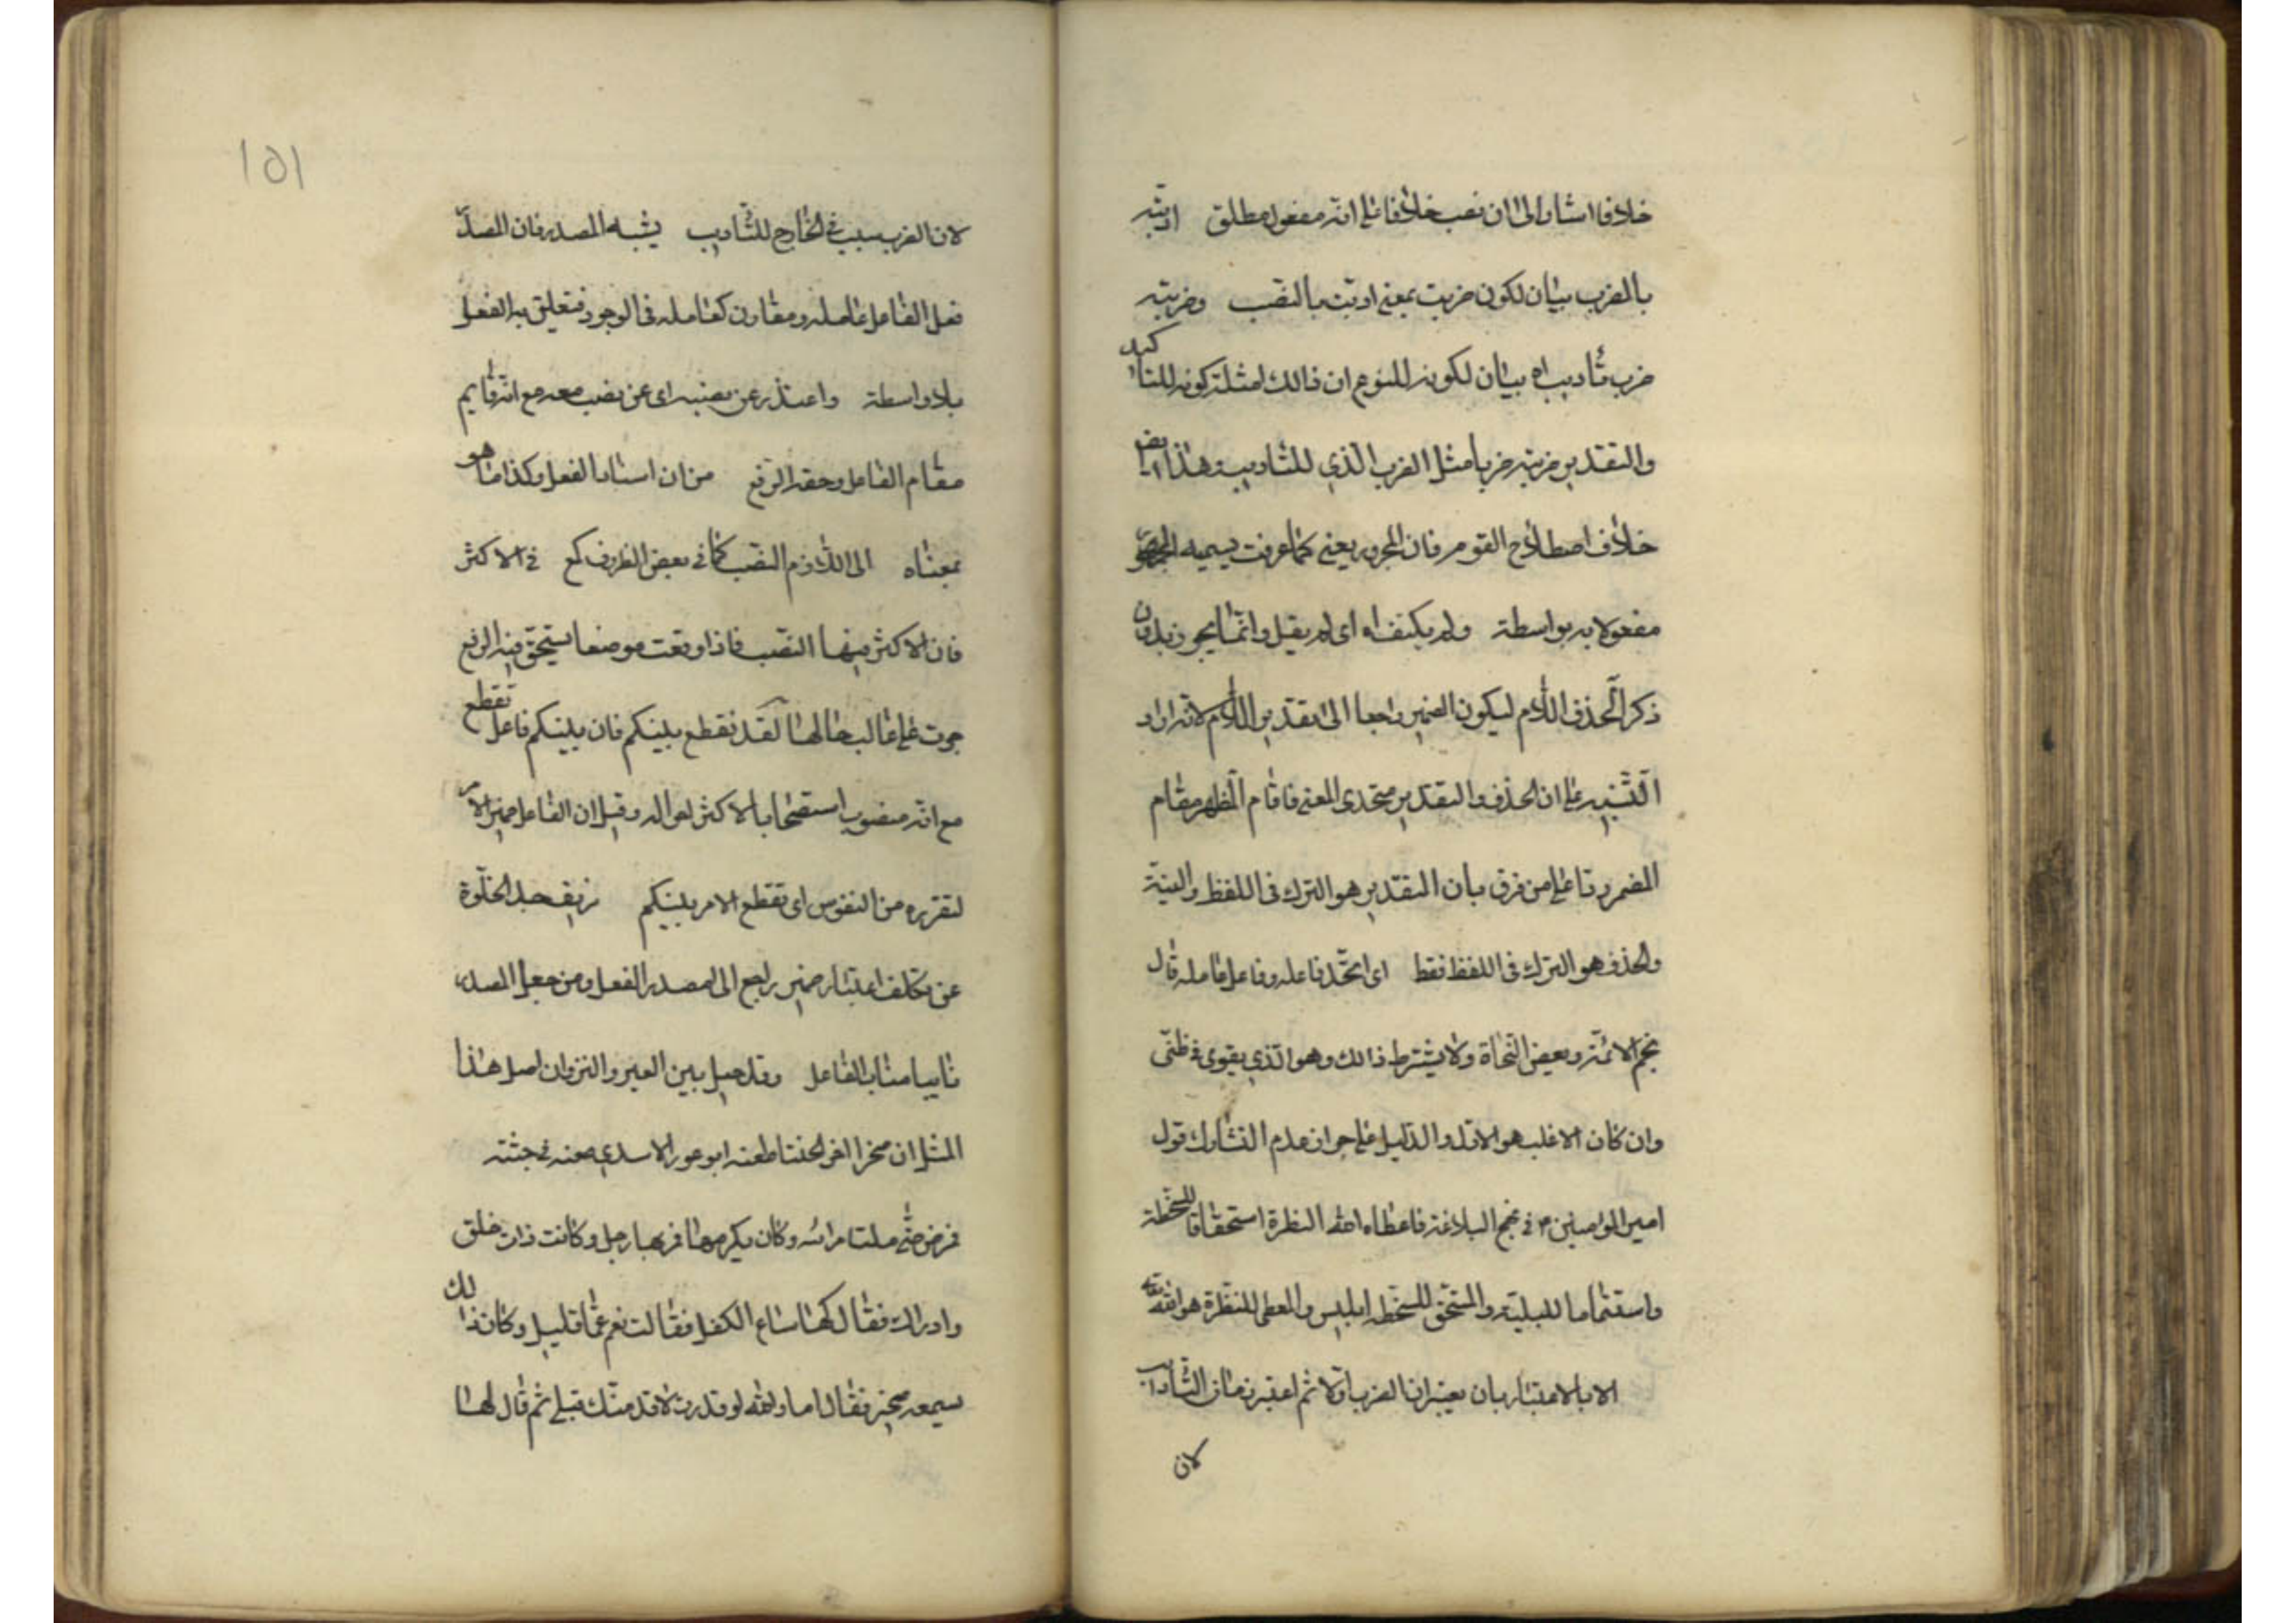 خلافا اشار الى ان نصب خلافا على انه مفعول مطلق ادبته
بالضرب بيان لكون ضربت بمعنى ادبت بالنصب وضربته
ضرب تأديب اه بيان لكونه للنوع ان فالك امثلة كونه للتأكيد
والتقدير ضربته ضربا مثل الضرب الذي للتاديب هذا ايض
خلاف اصطلاح القوم فان المجرور يعنى كما عرفت يسميه الجمهور
مفعولا به بواسطة ولم يكتف اه اى لم يقل وانما يجوز بدون
ذكر الحذف اللام ليكون الضمير راجعا الى تقدير اللام لانه اراد
التنبيه على ان الحذف والتقدير متحدى المعنى فاقام المظهر مقام
المضمر ردا على من فرق بان التقدير هو الترك فى اللفظ والنية
والحذف هو الترك فى اللفظ فقط اى اتحد فاعله وفاعل عامله قال
نجم الائمة وبعض النحاة ولا يشترط ذالك وهو الذي يقوى فى ظنى
وان كان الاغلب هو الاول والدليل على جواز عدم التشارك قول
امير المؤمنين م فى نهج البلاغة فاعطاه الله النظرة استحقاقا للسخطة
واستتماما للبلية والمستحق للسخطه ابليس والمعطى للنظرة هو الله تعالى
الا بالاعتبار بان يعتبر ان الضرب اولا ثم اعتبر زمان التأديب
لان
١٥١
لان الضرب سبب فى الخارج للتأديب يشبه المصدر فان المصدر
فعل الفاعل عامله ومقارن كعامله فى الوجود فتعلق به الفعل
بلا واسطة واعتذر عن نصبه اى عن نصب معه مع انه قايم
مقام الفاعل وحقه الرفع من ان اسناد الفعل وكذا ما هو
بمعناه الى اللازم النصب كما فى بعض الظروف كمع فى الاكثر
فان الاكثر فيها النصب فاذا وقعت موضعا يستحق فيه الرفع
جرت على غالب حالها لقد تقطع بينكم فان بينكم فاعل تقطع
مع انه منصوب استصحابا لاكثر احواله وقيل ان الفاعل ضمير الامر
لتقرره من النفوس اى تقطع الامر بينكم زيف حبذ الخلوة
عن تكلف اعتبار ضمير راجع الى المصدر الفعل ومن جعل المصدر
نايبا مناب الفاعل وقد حيل بين العير والنزوان اصل هذا
المثل ان صخرا اخو الخنسا طعنه ابو ثور الاسدي طعنه فى جنبه
فمرض حتى ملت امرأته وكان يكرمها فمر بها رجل وكانت ذات خلق
وادراك فقال لها اتباع الكفل فقالت نعم عما قليل وكان ذالك
يسمعه صخر فقال اما والله لو قدرت لاقدمنك قبلى ثم قال لها